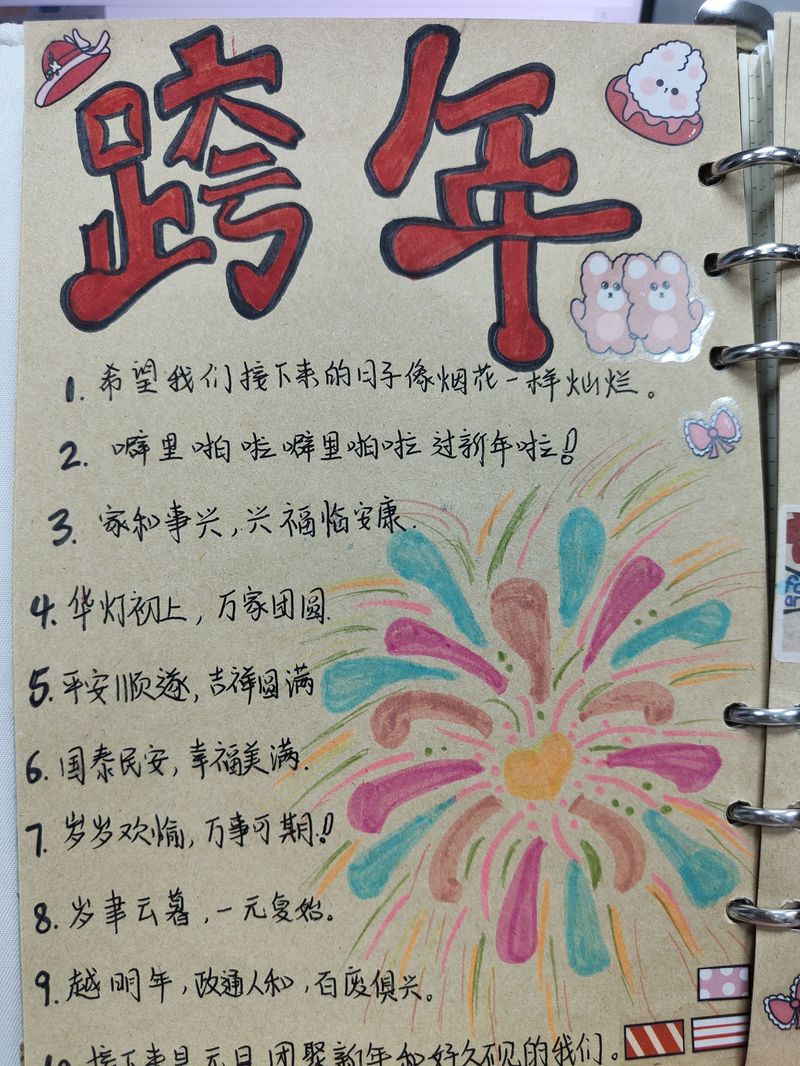 跨年
1. 希望我们接下来的日子像烟花一样灿烂。
2. 噼里啪啦噼里啪啦过新年啦！
3. 家和事兴,兴福临安康.
4. 华灯初上,万家团圆.
5. 平安顺遂,吉祥圆满
6. 国泰民安,幸福美满.
7. 岁岁欢愉,万事可期！
8. 岁聿云暮,一元复始。
9. 越明年,政通人和,百废俱兴。
10. 接下来是元旦,团聚新年和好久不见的我们。